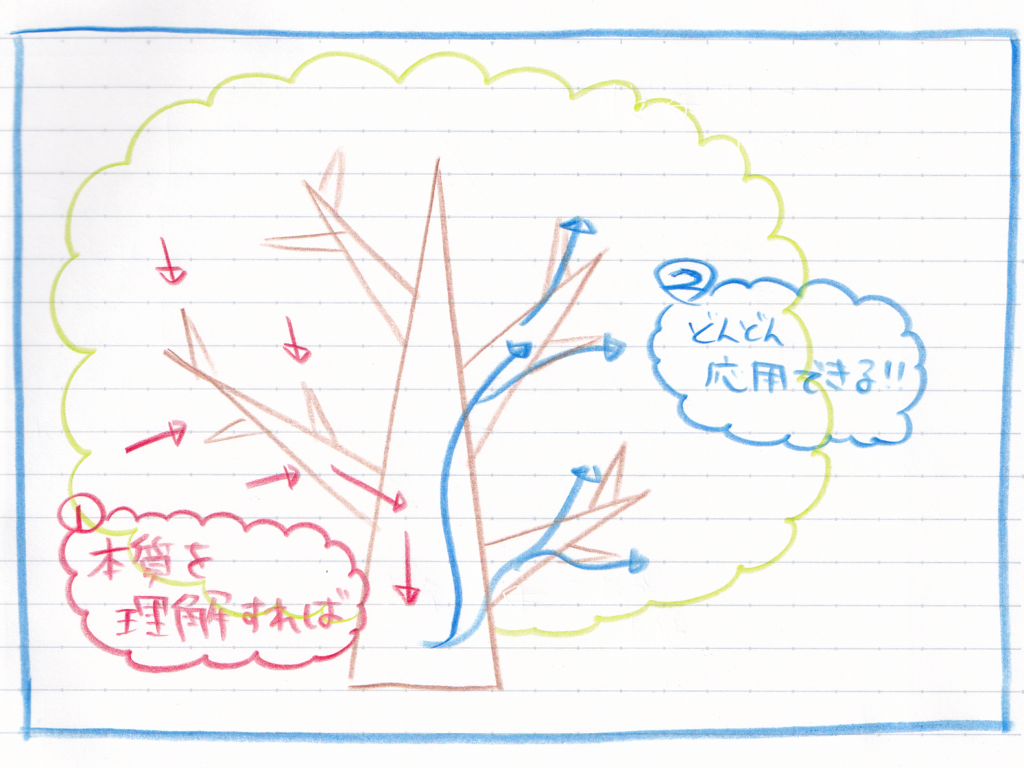 ①
本質を
理解すれば
②
どんどん
応用できる!!